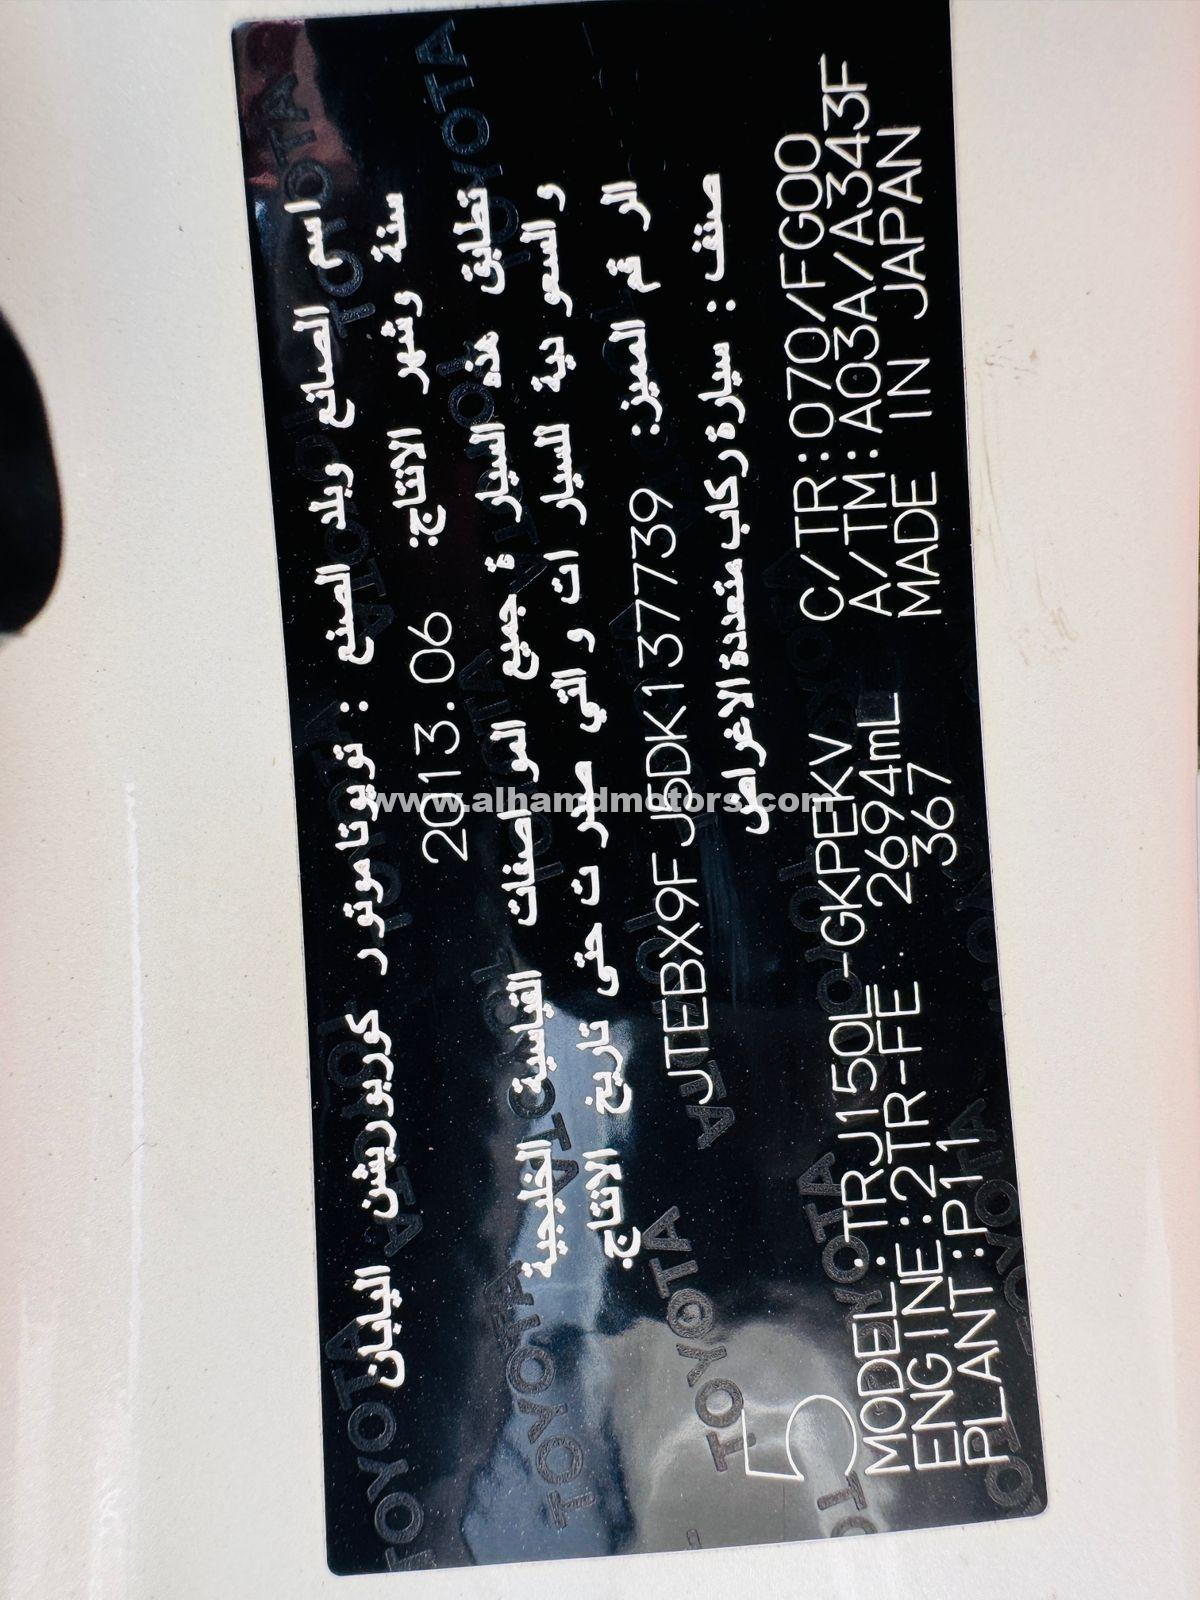 اسم الصانع وبلد الصنع : تويوتا موتور كوربوريشن اليابان
سنة وشهر الانتاج: 2013.06
تطابق هذه السيارة جميع المواصفات القياسية الخليجية
و السعودية للسيارات و التي صدرت حتى تاريخ الانتاج.
الرقم المميز: JTEBX9FJ5DK137739
صنف : سيارة ركاب متعددة الاغراض
5
MODEL:TRJ150L-GKPEKV C/TR:070/FG00
ENGINE:2TR-FE 2694mL A/TM:A03A/A343F
PLANT:P11 367 MADE IN JAPAN
www.alhamdmotors.com
TOYOTA